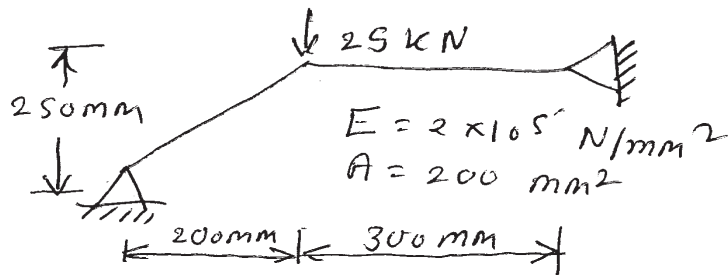 25 KN
250mm
E = 2 × 10 5 N/mm2
A = 200 mm2
200mm
300 mm